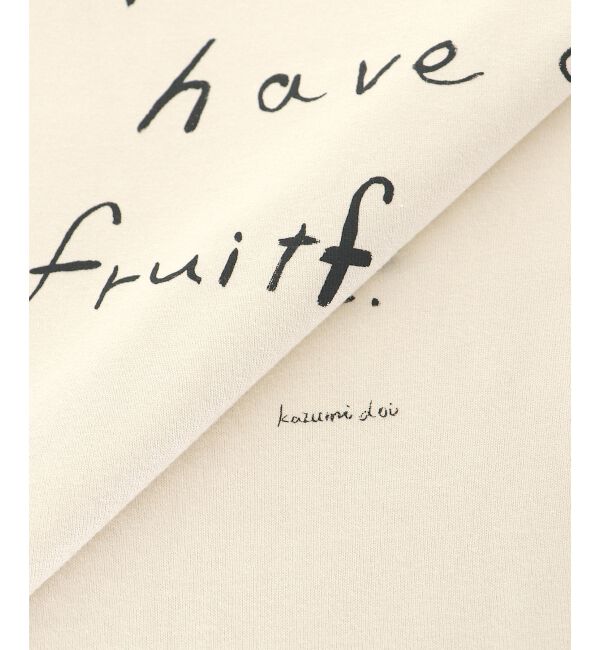 have
fruitf.
kazumi doi